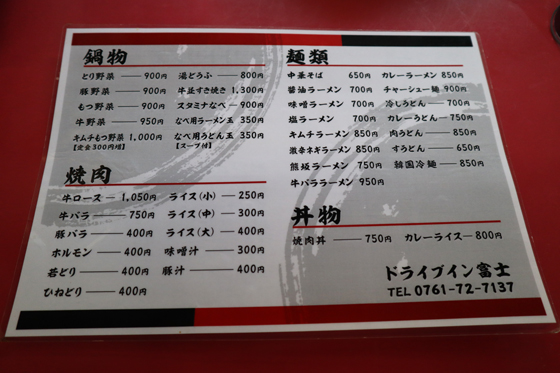 鍋物
とり野菜 900円 湯どうふ 800円
豚野菜 900円 牛並すき焼き 1,300円
もつ野菜 900円 スタミナなべ 900円
牛野菜 950円 なべ用ラーメン玉 350円
キムチもつ野菜 1,000円 なべ用うどん玉 350円
【定食300円増】 【スープ付】
焼肉
牛ロース 1,050円 ライス(小) 250円
牛バラ 750円 ライス(中) 300円
豚バラ 400円 ライス(大) 400円
ホルモン 400円 味噌汁 300円
若どり 400円 豚汁 400円
ひねどり 400円
麺類
中華そば 650円 カレーラーメン 850円
醤油ラーメン 700円 チャーシュー麺 900円
味噌ラーメン 700円 冷しうどん 700円
塩ラーメン 700円 カレーうどん 750円
キムチラーメン 850円 肉うどん 850円
激辛ネギラーメン 850円 すうどん 650円
熊坂ラーメン 750円 韓国冷麺 850円
牛バララーメン 950円
丼物
焼肉丼 750円 カレーライス 800円
ドライブイン富士
TEL 0761-72-7137